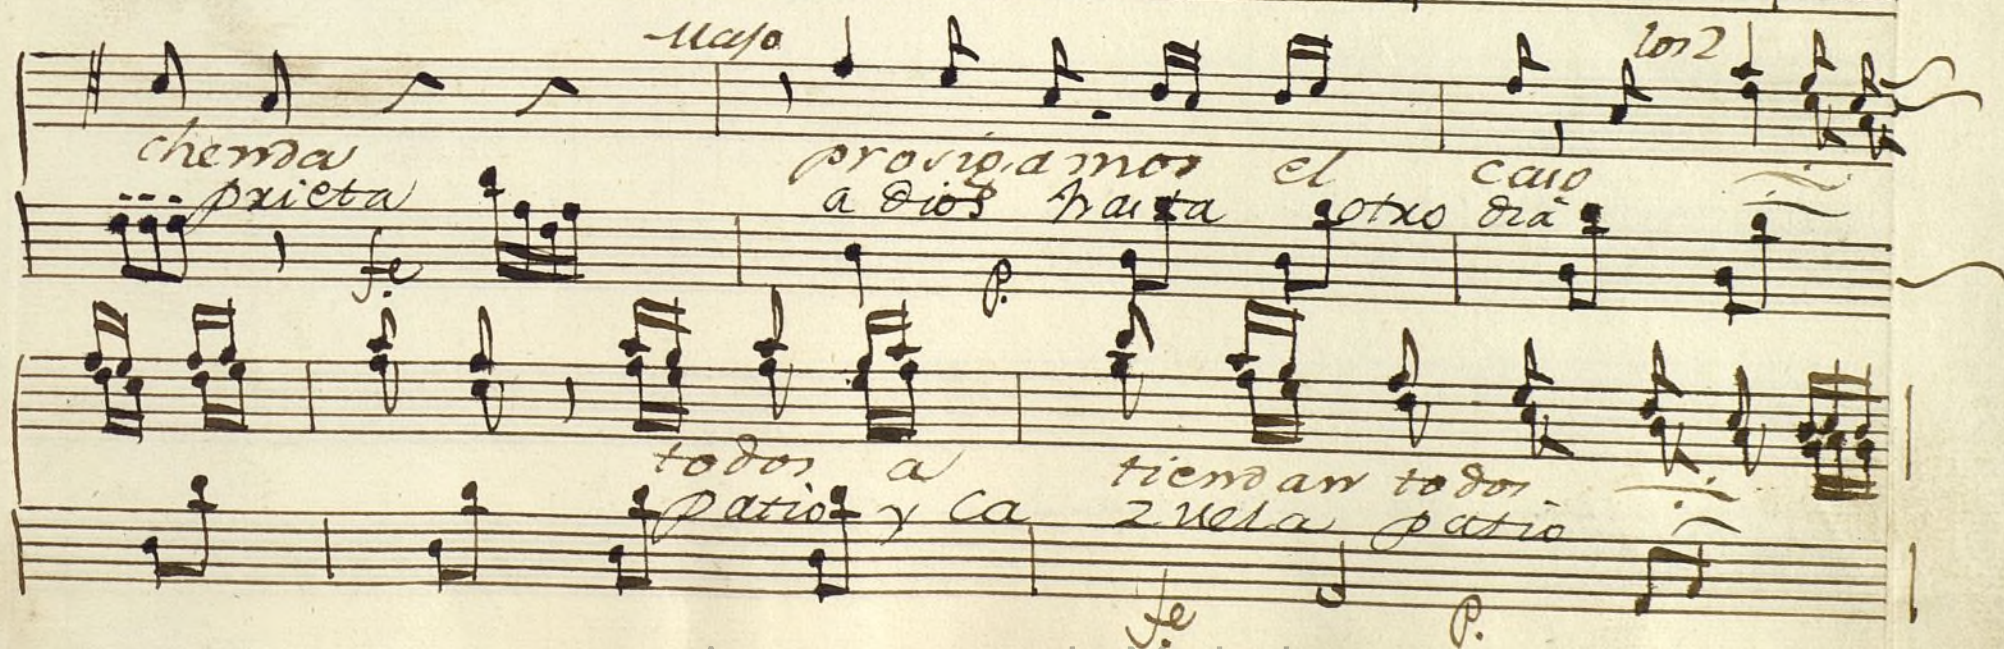 Majo los 2
chenda prosigamos el caso
prieta a dios hasta otro dia
fe p.
todos a tiendan todos
patio y ca zuela patio
fe p.